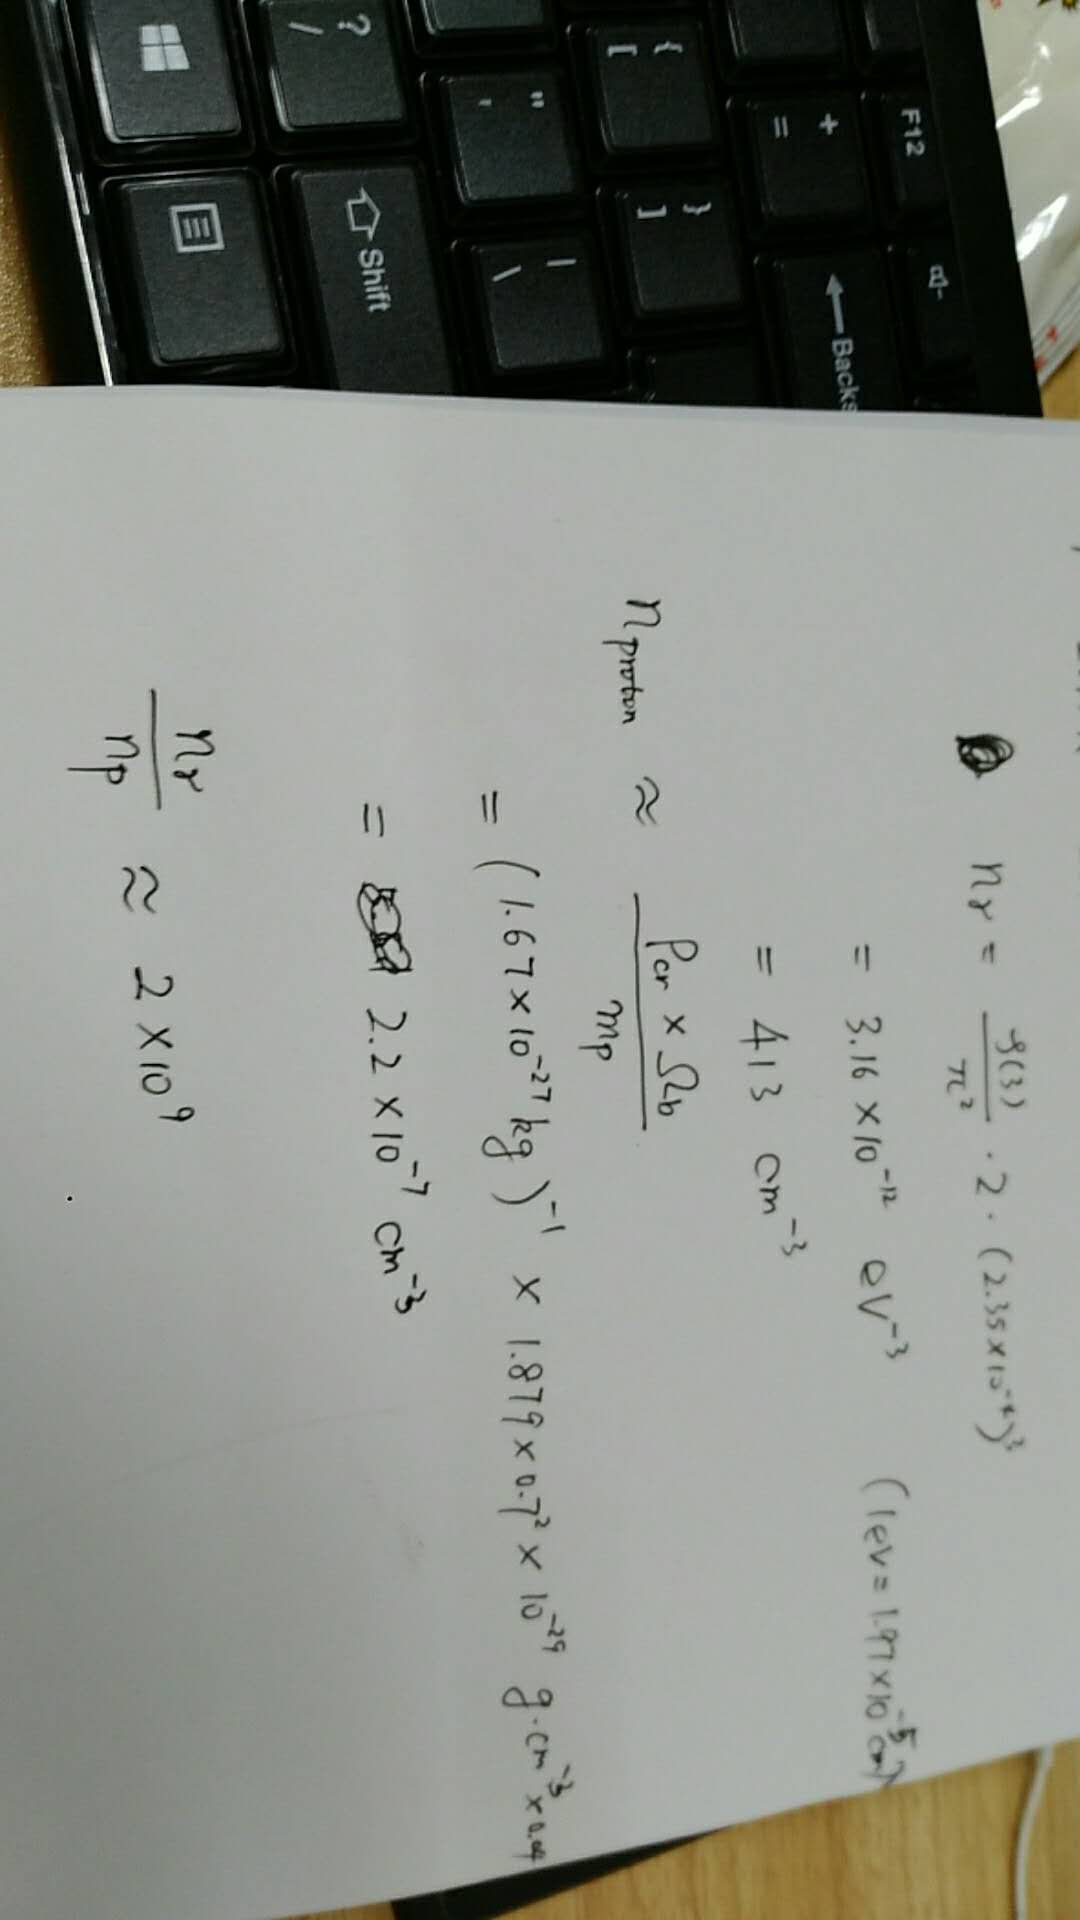 F12
+
=
← Backs
{
[
}
]
"
'
|
\
?
/
Shift
nγ = ζ(3)/π² · 2 · (2.35×10⁻⁴)³
= 3.16 × 10⁻¹² eV⁻³ (1eV = 1.97 × 10⁻⁵ cm)
= 413 cm⁻³
n proton ≈ ρcr × Ωb / mp
= (1.67 × 10⁻²⁷ kg)⁻¹ × 1.879 × 0.7² × 10⁻²⁹ g·cm⁻³ × 0.04
= 2.2 × 10⁻⁷ cm⁻³
nγ/np ≈ 2 × 10⁹